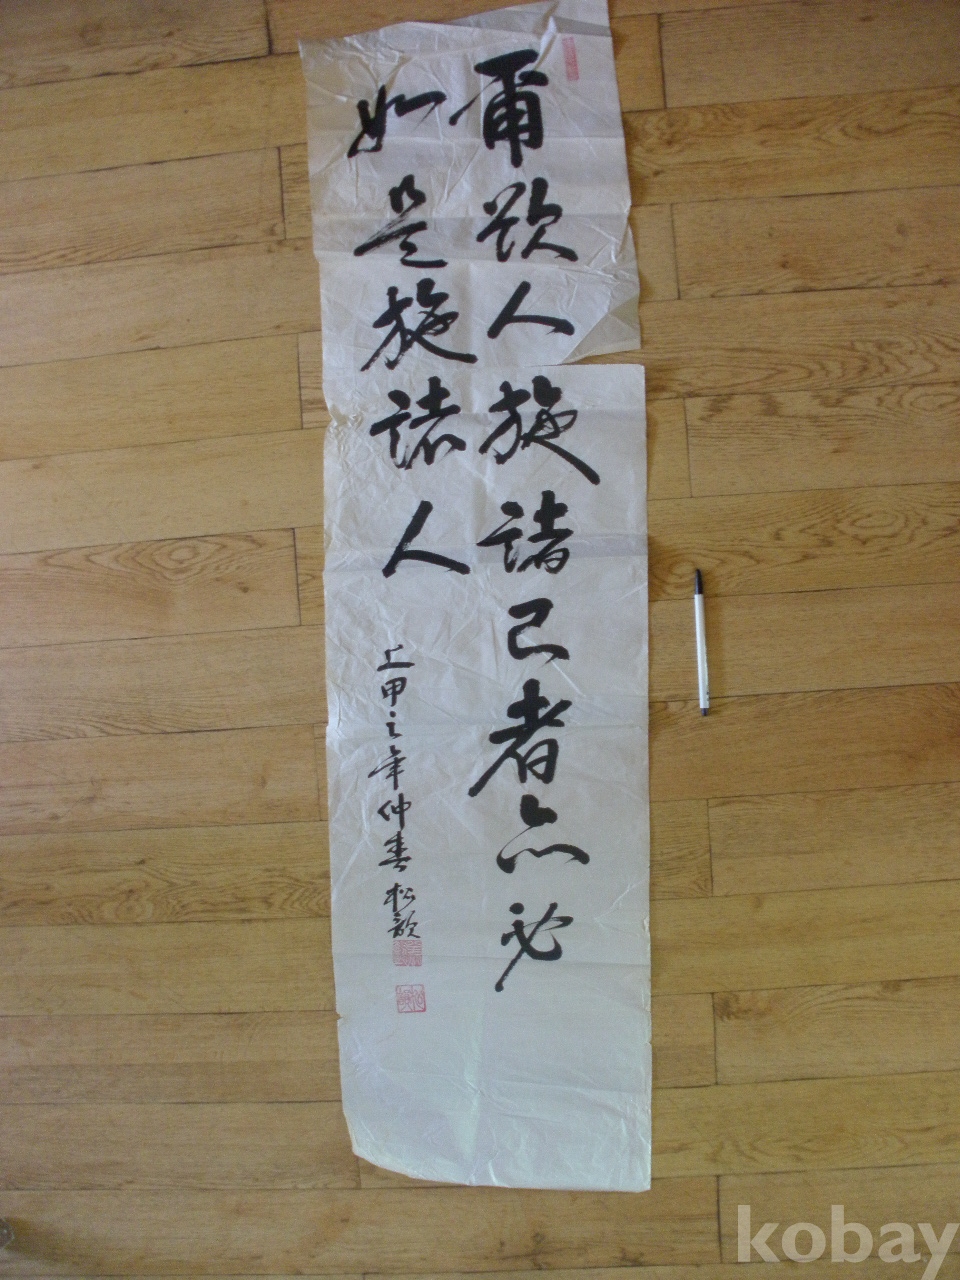 爾欲人施諸己者亦必
如是施諸人
上甲之年仲春 松歆
kobay